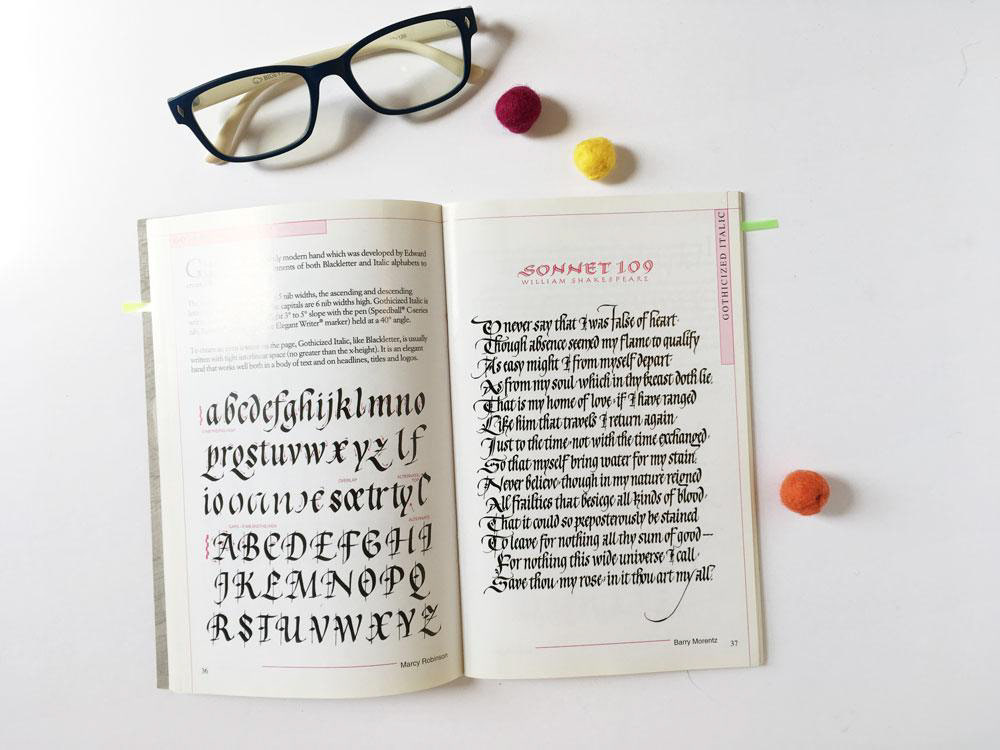 modern hand which was developed by Edward
of both Blackletter and Italic alphabets to
5 nib widths, the ascending and descending
capitals are 6 nib widths high. Gothicized Italic is
3° to 5° slope with the pen (Speedball® C-series
Elegant Writer® marker) held at a 40° angle.
on the page, Gothicized Italic, like Blackletter, is usually
written with tight interlinear space (no greater than the x-height). It is an elegant
hand that works well both in body of text and on headlines, titles and logos.
abcdefghijklmno
prqstuvwxyz
OVERLAP
ALTERNATE
ALTERNATE
ABCDEFGHI
JKLMNOPQ
RSTUVWXYZ
36
Marcy Robinson
GOTHICIZED ITALIC
SONNET 109
WILLIAM SHAKESPEARE
O never say that I was false of heart
Though absence seemed my flame to qualify
As easy might I from myself depart
As from my soul which in thy breast doth lie.
That is my home of love · if I have ranged
Like him that travels I return again
Just to the time · not with the time exchanged
So that myself bring water for my stain
Never believe · though in my nature reigned
All frailties that besiege all kinds of blood ·
That it could so preposterously be stained
To leave for nothing all thy sum of good —
For nothing this wide universe I call
Save thou · my rose · in it thou art my all.
Barry Morentz
37